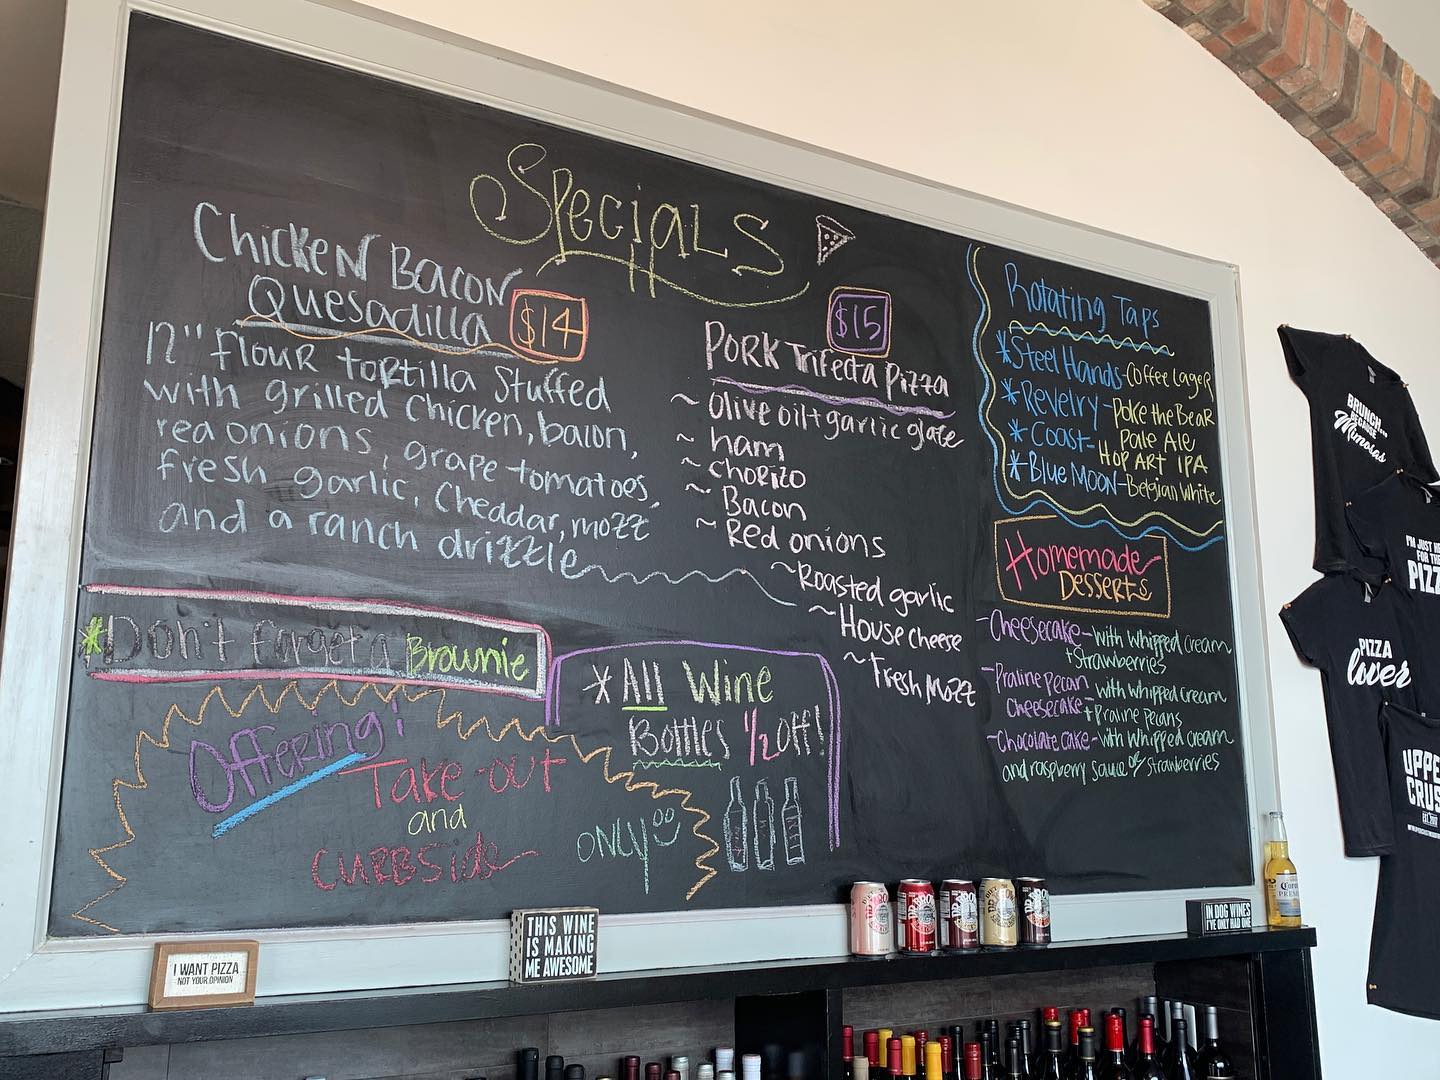 Specials
Chicken Bacon
Quesadilla $14
12" flour tortilla stuffed
with grilled chicken, bacon,
red onions, grape tomatoes,
fresh garlic, cheddar, mozz
and a ranch drizzle
$15
Pork Trifecta Pizza
~ Olive oil + garlic glaze
~ ham
~ chorizo
~ Bacon
~ Red onions
~ Roasted garlic
~ House cheese
~ Fresh Mozz
Rotating Taps
*Steel Hands - Coffee Lager
*Revelry - Poke the Bear
Pale Ale
*Coast - Hop Art IPA
*Blue Moon - Belgian White
Homemade
Desserts
- Cheesecake - with whipped cream
+ Strawberries
- Praline pecan
cheesecake - with whipped cream
+ Praline pecans
- Chocolate cake - with whipped cream
and raspberry sauce or strawberries
*Don't forget a Brownie
*All Wine
Bottles 1/2 off!
Offering!
Take-out
and
Curbside
only
I WANT PIZZA
NOT YOUR OPINION
THIS WINE
IS MAKING
ME AWESOME
IN DOG WINES
I'VE ONLY HAD ONE
Corona
BRUNCH...
BECAUSE
Mimosas
I'M JUST HE
FOR THE
PIZZ
PIZZA
lover
UPPE
CRUS